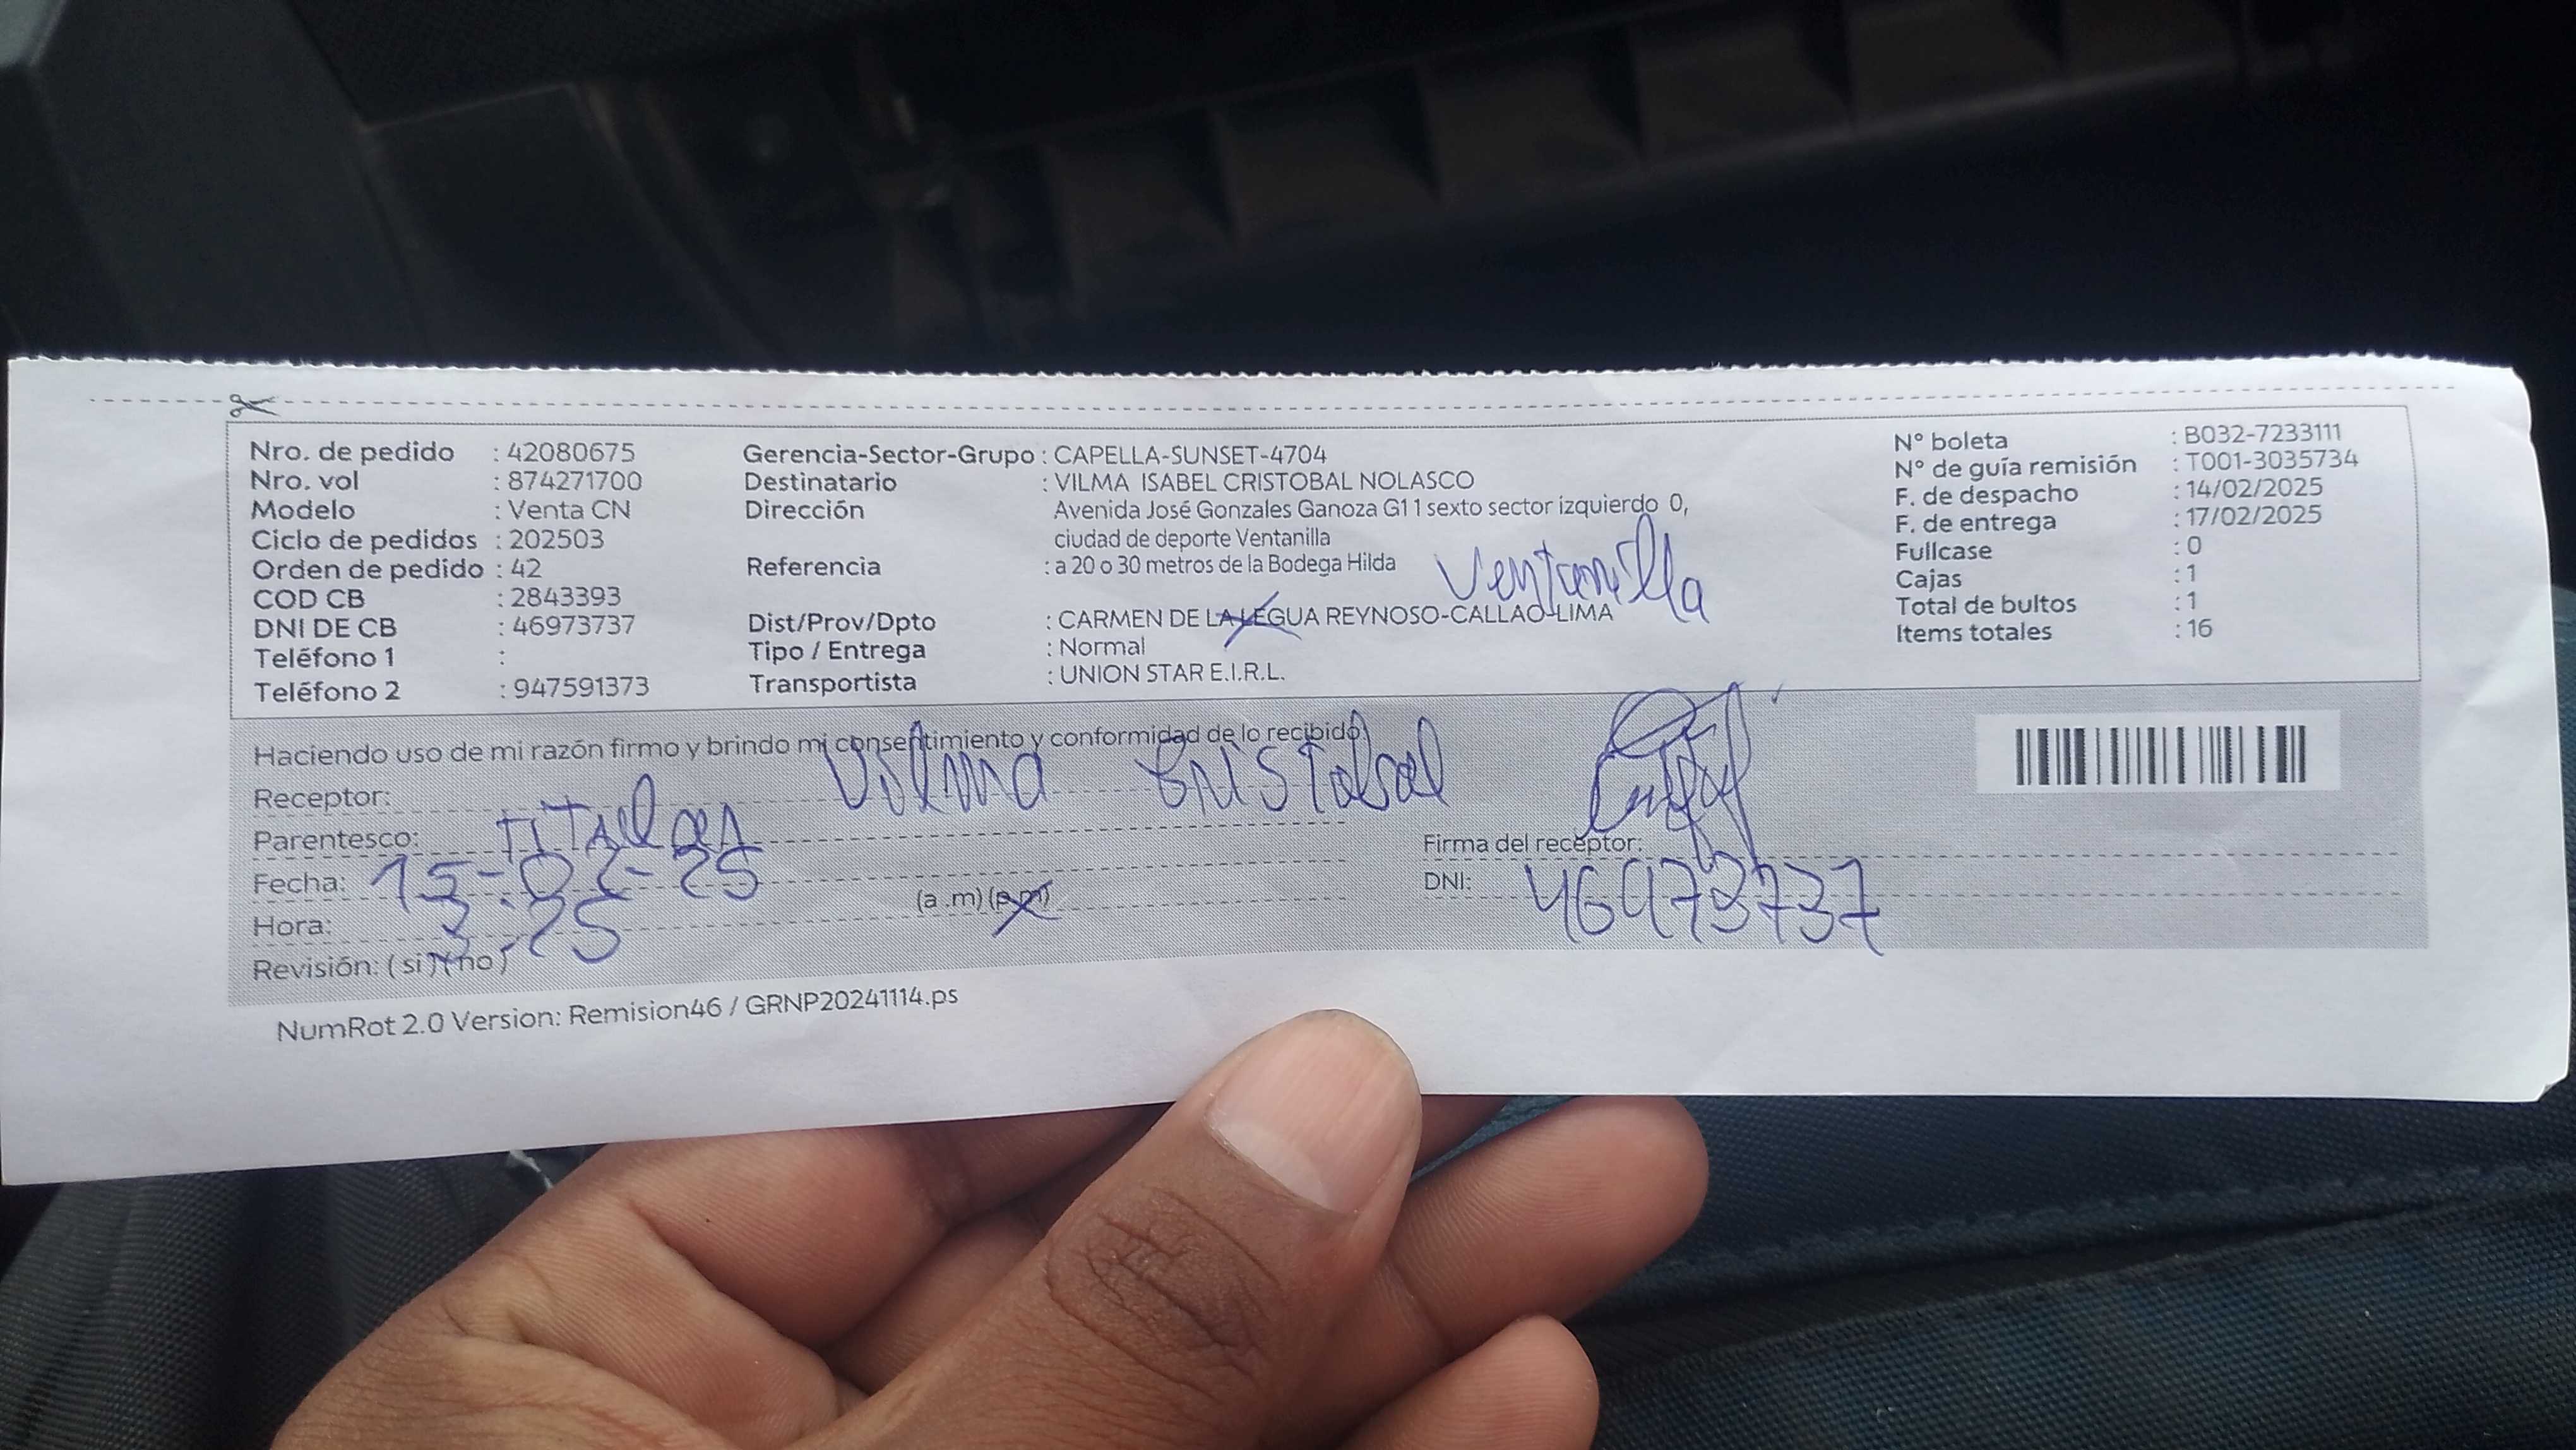 Nro. de pedido : 42080675
Nro. vol : 874271700
Modelo : Venta CN
Ciclo de pedidos : 202503
Orden de pedido : 42
COD CB : 2843393
DNI DE CB : 46973737
Teléfono 1 :
Teléfono 2 : 947591373
Gerencia-Sector-Grupo : CAPELLA-SUNSET-4704
Destinatario : VILMA ISABEL CRISTOBAL NOLASCO
Dirección Avenida José Gonzales Ganoza G11 sexto sector izquierdo 0,
ciudad de deporte Ventanilla
Referencia : a 20 o 30 metros de la Bodega Hilda
Ventanilla
Dist/Prov/Dpto : CARMEN DE LA LEGUA REYNOSO-CALLAO-LIMA
Tipo / Entrega : Normal
Transportista : UNION STAR E.I.R.L.
N° boleta : B032-7233111
N° de guía remisión : T001-3035734
F. de despacho : 14/02/2025
F. de entrega : 17/02/2025
Fullcase : 0
Cajas : 1
Total de bultos : 1
Items totales : 16
Haciendo uso de mi razón firmo y brindo mi consentimiento y conformidad de lo recibido
Receptor: Vilma Cristobal
Parentesco: TITULAR
Fecha: 15-02-25
Hora: 3:25 (a .m) (p.m)
Revisión: ( si ) ( no )
Firma del receptor:
DNI: 46973737
NumRot 2.0 Version: Remision46 / GRNP20241114.ps